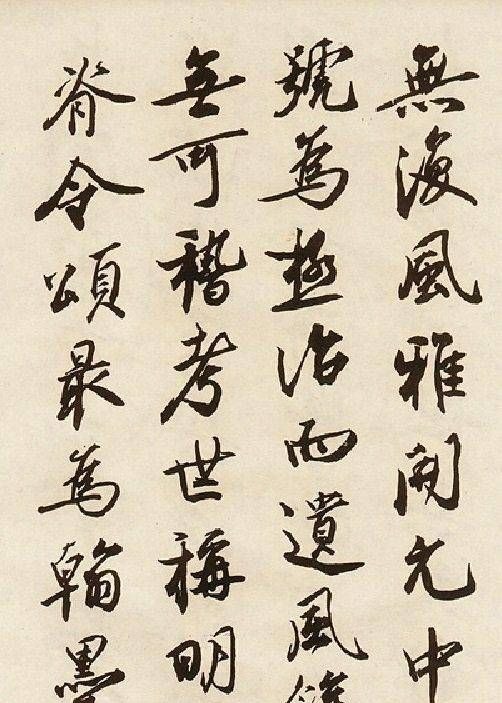 無復風雅開元中
號為極治而遺風
無可稽考世稱明
脊令頌最為翰墨